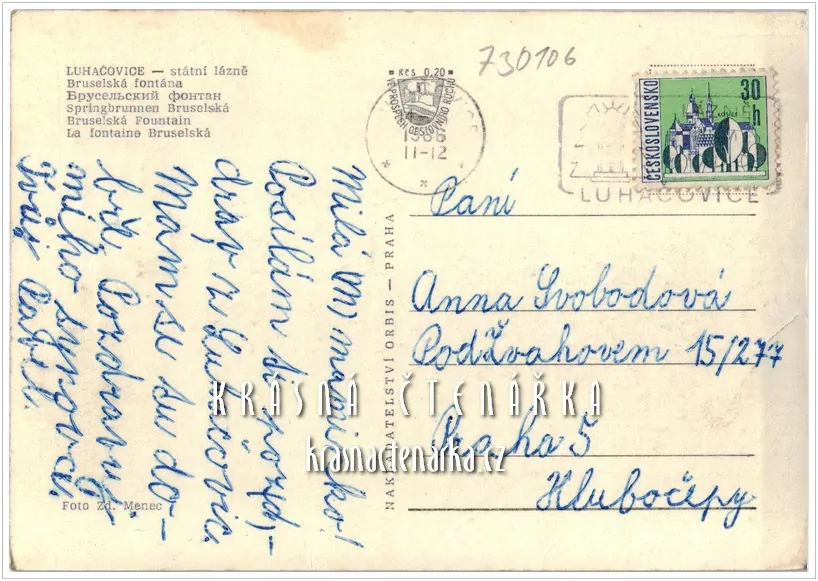 LUHAČOVICE — státní lázně
Bruselská fontána
Брусельский фонтан
Springbrunnen Bruselská
Bruselská Fountain
La fontaine Bruselská
Kčs 0,20
730106
11-12
ČESKOSLOVENSKO
30 h
LUHAČOVICE
Milá (m) maminko!
Posílám ti pozd,-
drav z Luhačovic.
Mám se tu do-
bře. Pozdravuj
mího synovce.
Tvůj Pavel.
NAKLADATELSTVÍ ORBIS — PRAHA
Paní
Anna Svobodová
Pod Žvahovem 15/277
Praha 5
Hlubočepy
KRÁSNÁ ČTENÁŘKA
krasnactenarka.cz
Foto Zd. Menec